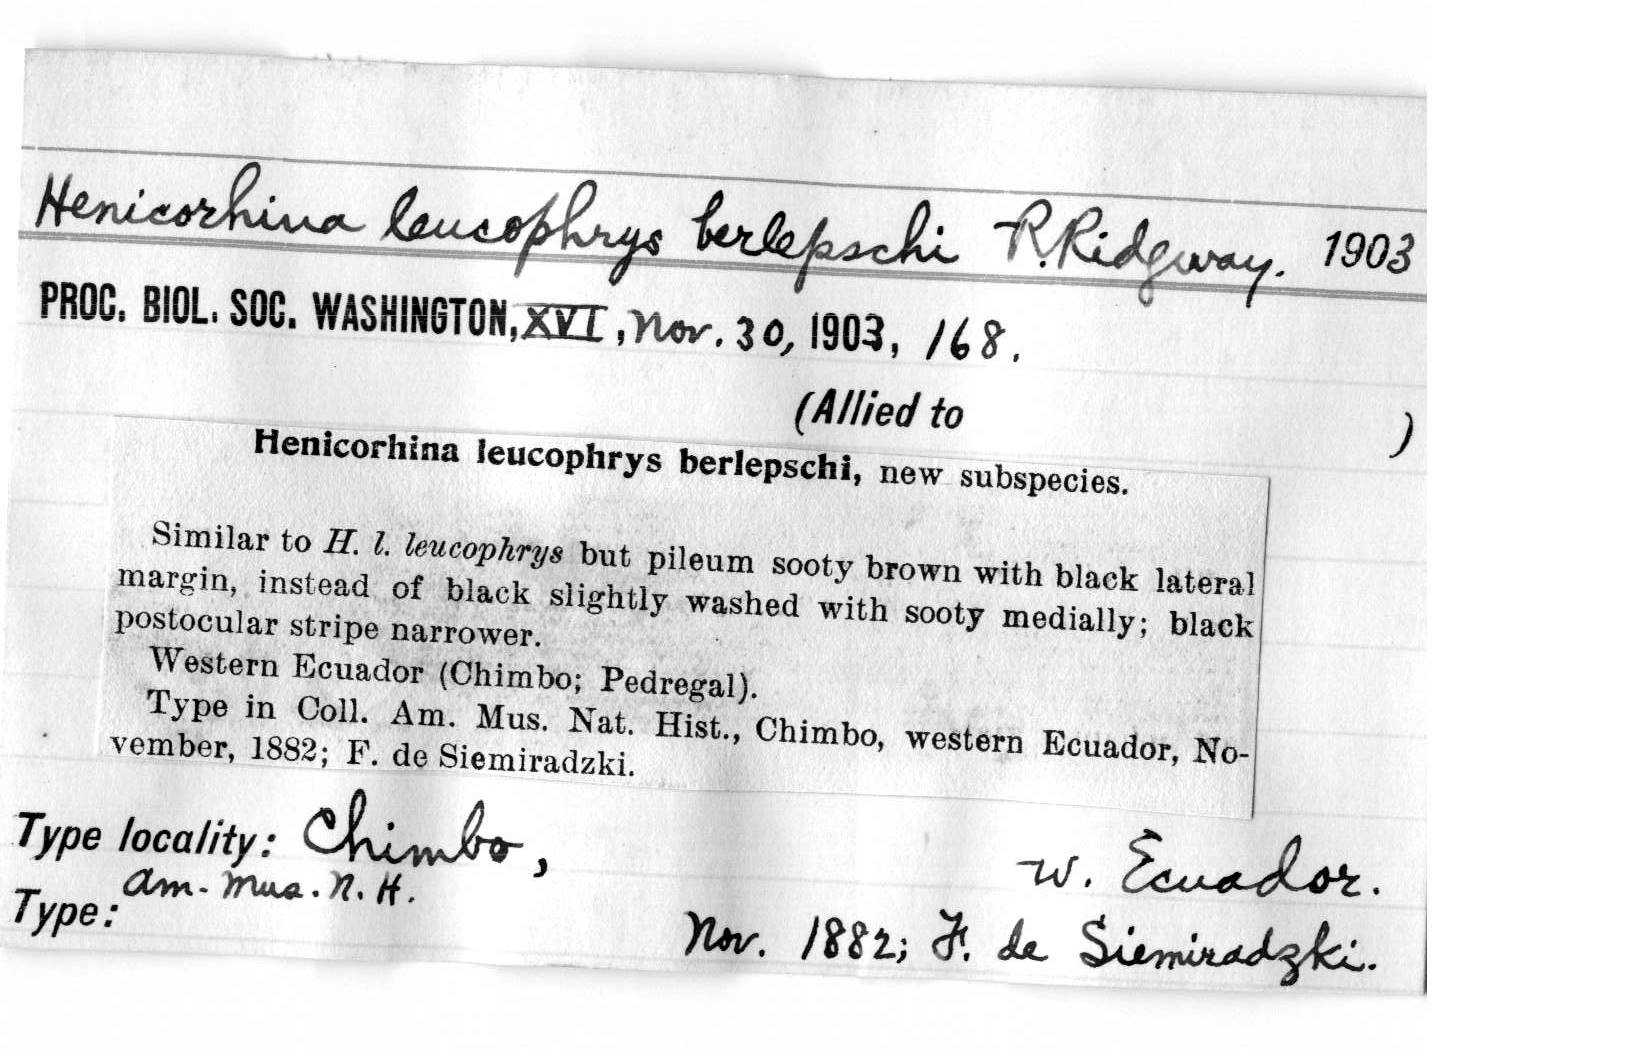 Henicorhina leucophrys berlepschi R. Ridgway. 1903
PROC. BIOL. SOC. WASHINGTON, XVI, Nov. 30, 1903, 168.
(Allied to )
Henicorhina leucophrys berlepschi, new subspecies.
Similar to H. l. leucophrys but pileum sooty brown with black lateral
margin, instead of black slightly washed with sooty medially; black
postocular stripe narrower.
Western Ecuador (Chimbo; Pedregal).
Type in Coll. Am. Mus. Nat. Hist., Chimbo, western Ecuador, No-
vember, 1882; F. de Siemiradzki.
Type locality: Chimbo, W. Ecuador.
Type: Am. Mus. N. H. Nov. 1882; F. de Siemiradzki.